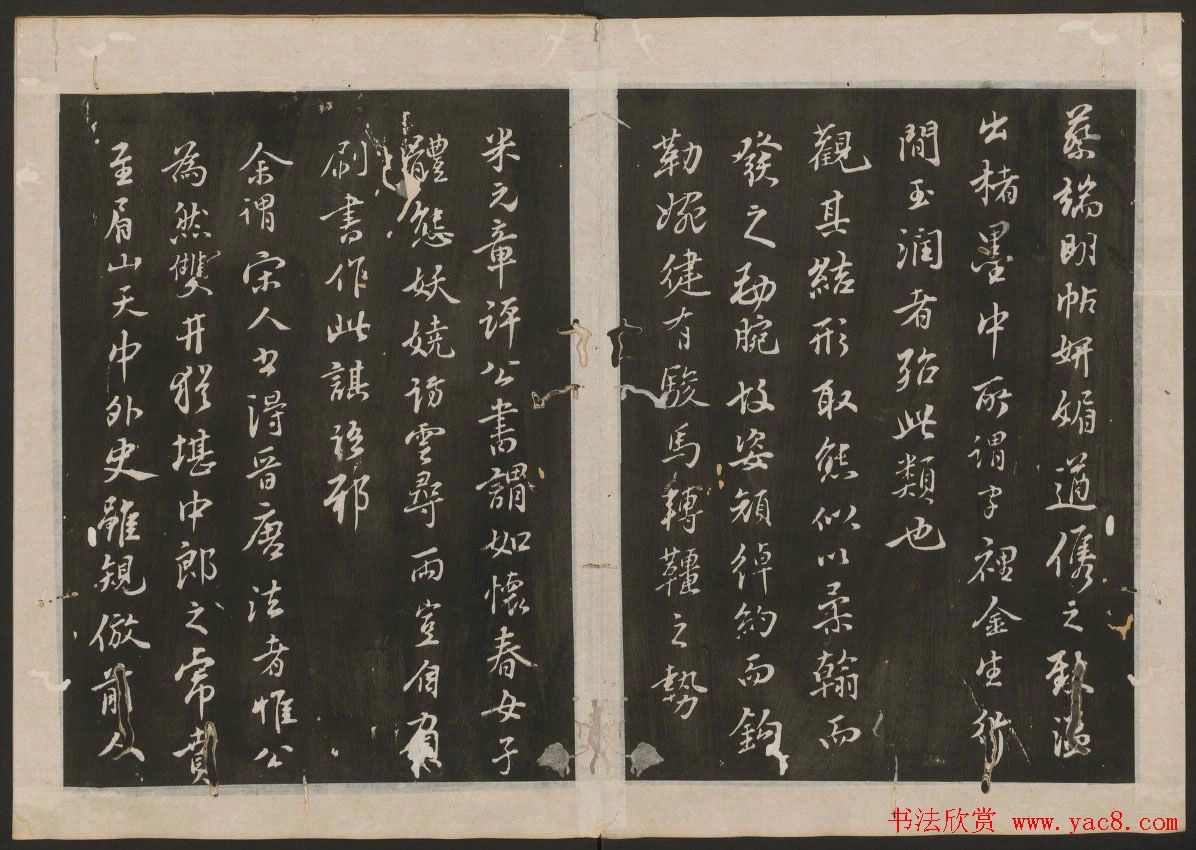 蔡端明帖妍媚遒儁之致溢
出楮墨中所謂字裡金生行
間玉润者殆此類也
觀其結形取態似以柔翰而
發之勁腕故姿頗綽約而鉤
勒婉健有駿馬轉韁之勢
米元章評公書謂如懷春女子
體態妖嬈訪雲尋雨豈自有
刷書作此謀語邪
余謂宋人书得晋唐法者惟公
為然雙井猶堪中郎之虎賁
至眉山天中外史雖規倣前人
书法欣赏 www.yac8.com